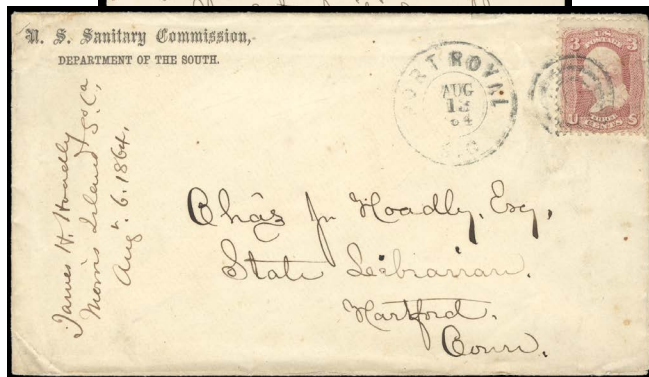 U. S. Sanitary Commission,
DEPARTMENT OF THE SOUTH.
PORT ROYAL
AUG
13
64
S.C
U S
3 3
POSTAGE
THREE
U CENTS S
James H. Hoadly
Morris Island, So. Ca,
Aug. 6. 1864.
Chas J. Hoadly, Esq,
State Librarian.
Hartford.
Conn.